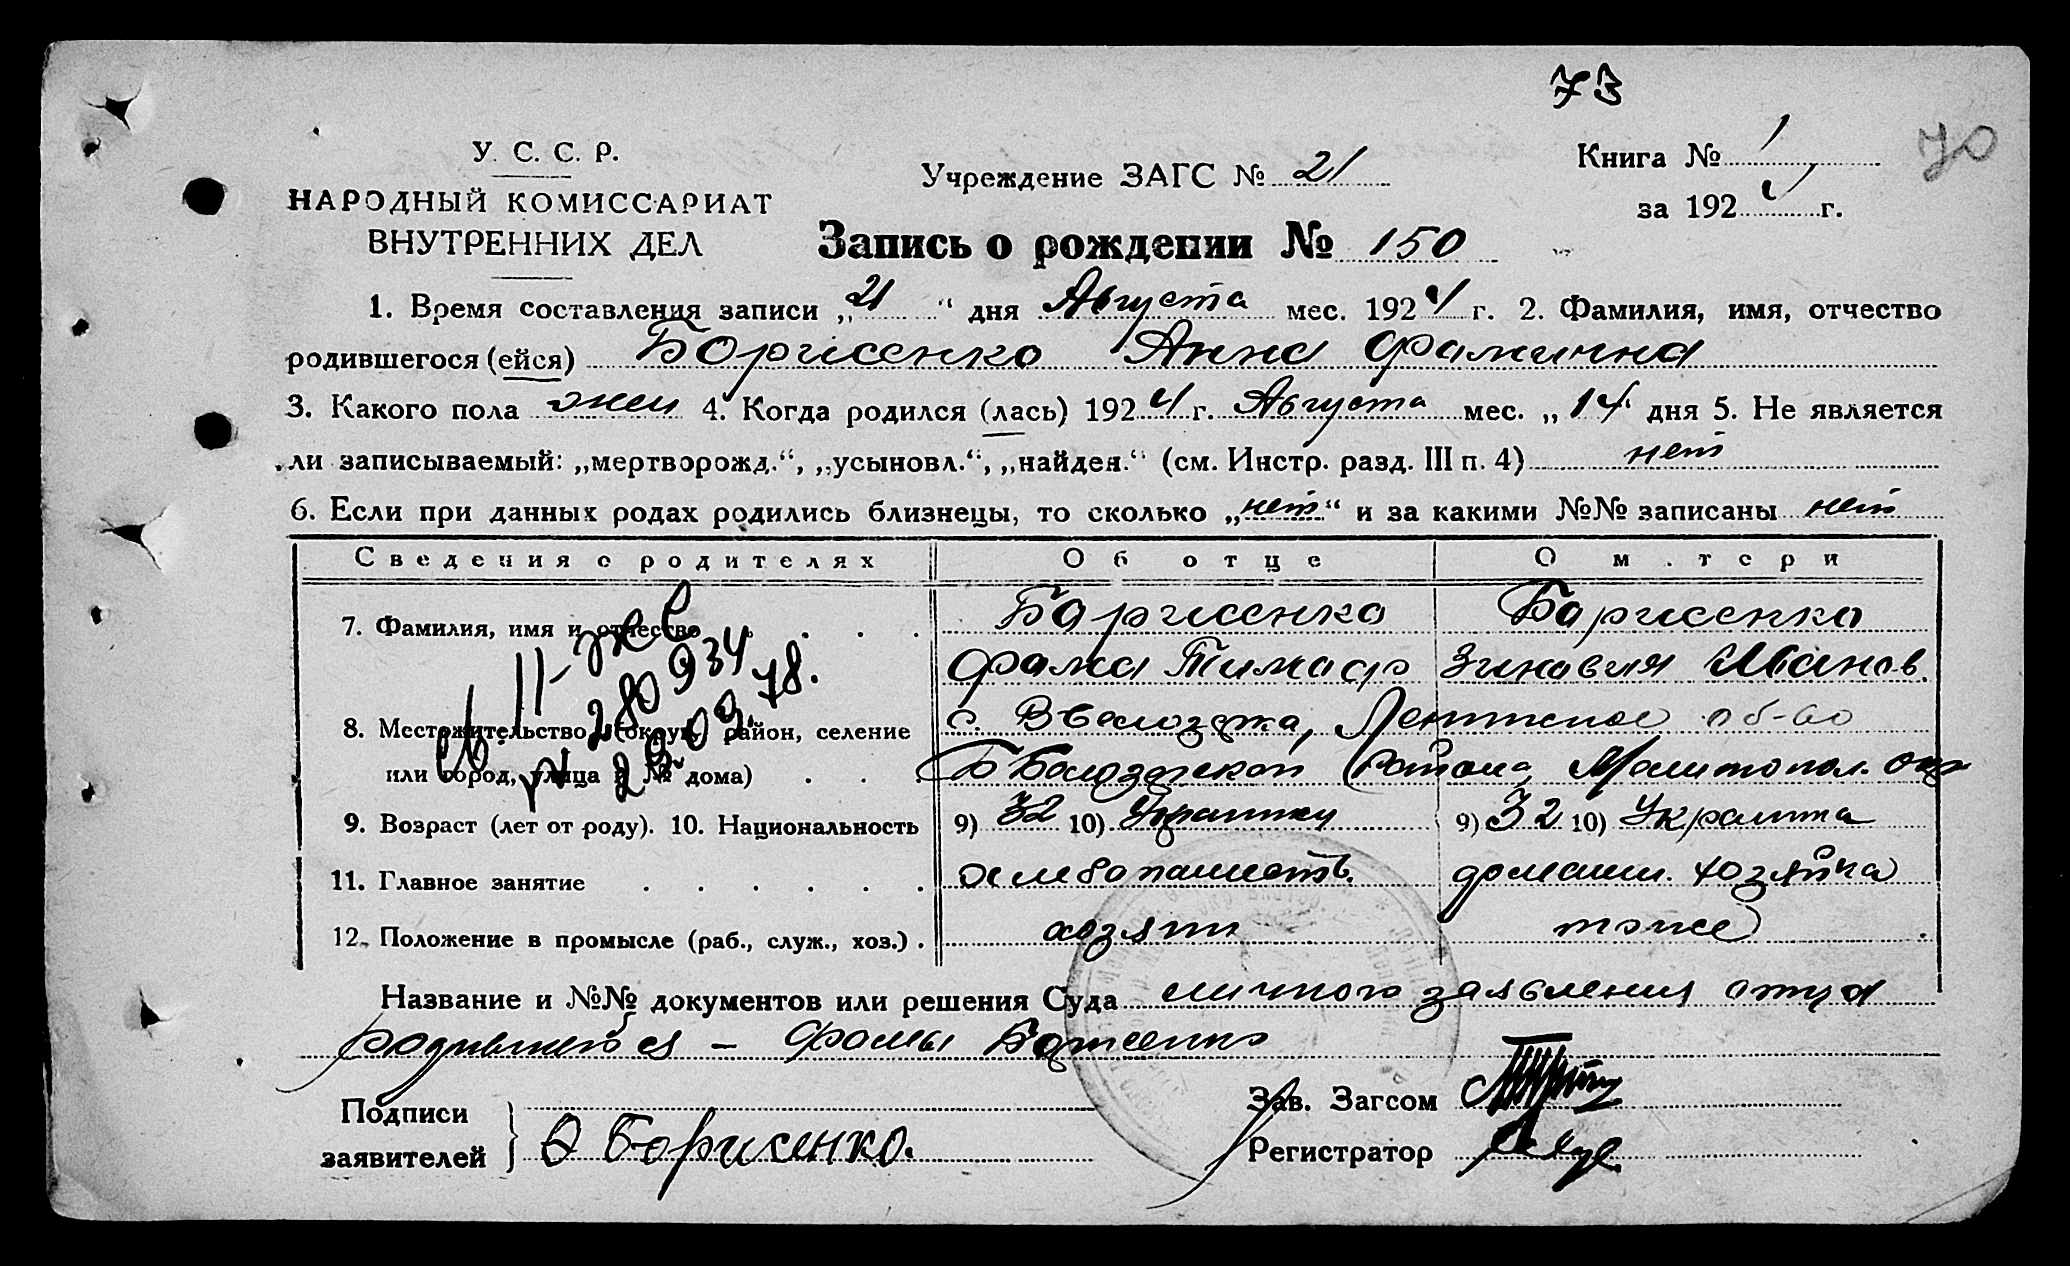 73
70
У. С. С. Р.
НАРОДНЫЙ КОМИССАРИАТ
ВНУТРЕННИХ ДЕЛ
Учреждение ЗАГС № 21
Книга № 1
за 1924 г.
Запись о рождении № 150
1. Время составления записи „21“ дня Августа мес. 1924 г. 2. Фамилия, имя, отчество
родившегося (ейся) Борисенко Анна Фамична
3. Какого пола жен 4. Когда родился (лась) 1924 г. Августа мес. „14“ дня 5. Не является
ли записываемый: „мертворожд.“, „усыновл.“, „найден.“ (см. Инстр. разд. III п. 4) нет
6. Если при данных родах родились близнецы, то сколько „нет“ и за какими №№ записаны нет
Сведения о родителях Об отце О м.тери
7. Фамилия, имя и отчество Борисенко Борисенко
Фома Тимоф Зиновия Иванов.
8. Местожительство (округ, район, селение с.
или город, улица и № дома) района, Мелитопол. окр
II-жс
280934
29.09.78.
9. Возраст (лет от роду). 10. Национальность 9) 32 10) 9) 32 10) Украинка
11. Главное занятие хлебопашеств. домашн. хозяйка
12. Положение в промысле (раб., служ., хоз.) хозяин тоже
Название и №№ документов или решения Суда личного заявления отца
родившейся – Фомы
Подписи
заявителей Ф Борисенко.
Зав. Загсом
Регистратор